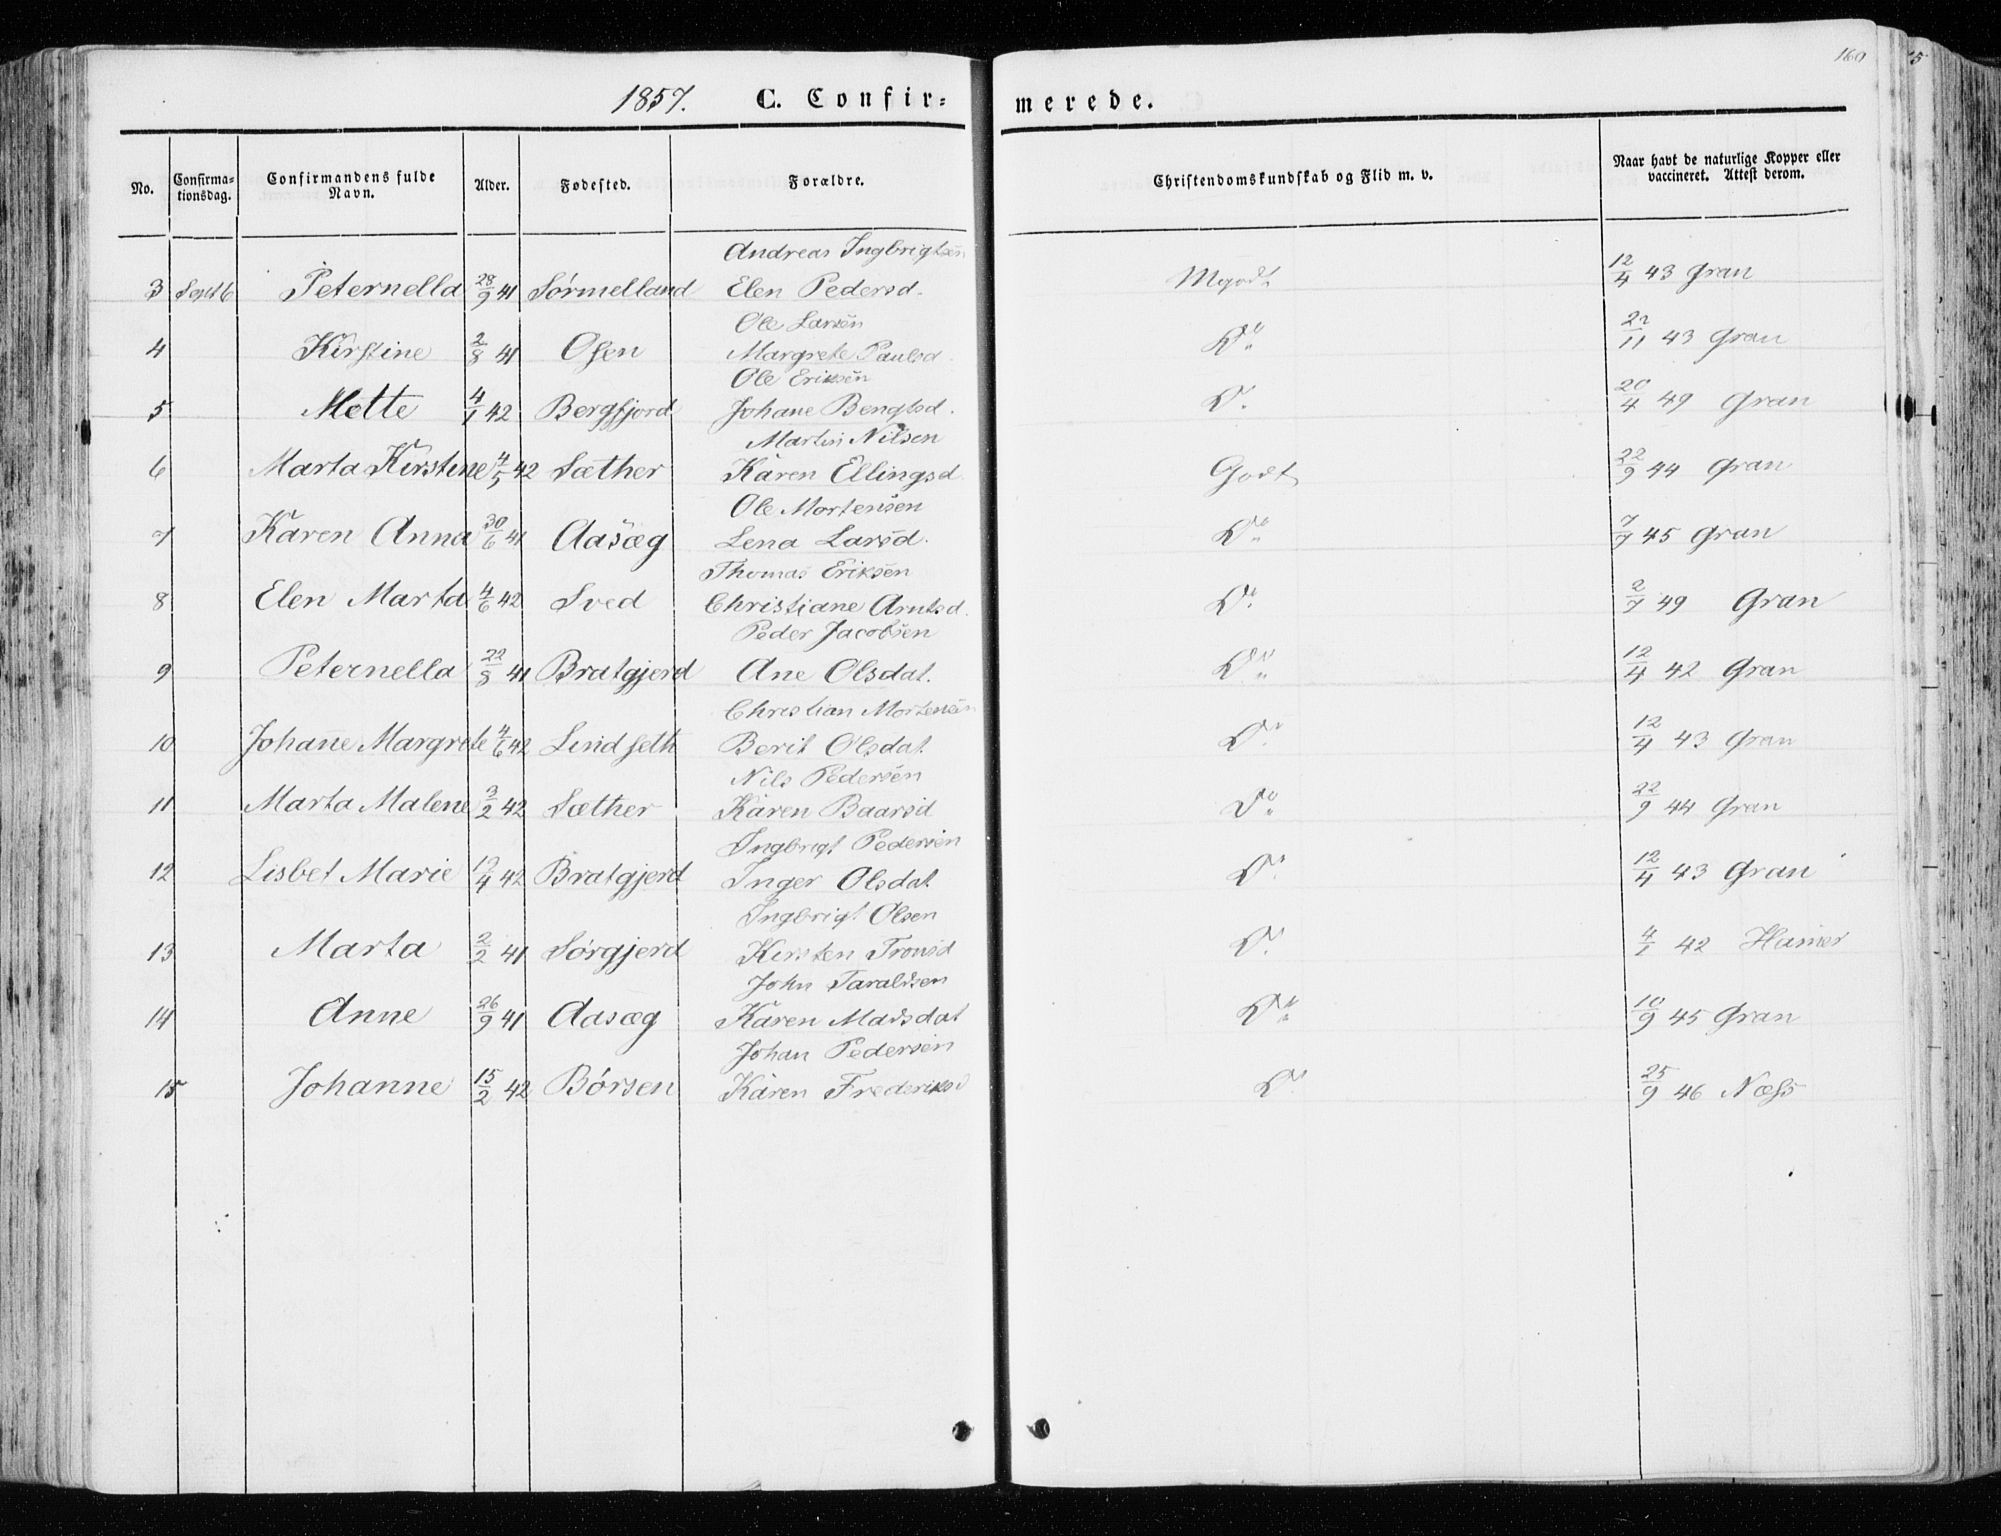 160
5
1857. C. Confir= merede.
No. Confirma=tionsdag. Confirmandens fulde Navn. Alder. Fødested. Forældre. Christendomskundskab og Flid m. v. Naar havt de naturlige Kopper eller vaccineret. Attest derom.
Andreas Ingbrigtsen
3 Sept 6 Peternella 28/9 41 Sørmelland Elen Pedersd. Mgodt 12/4 43 Gran
Ole Larsen
4 Kirstine 2/8 41 Osen Margrete Paulsd. Do 22/11 43 Gran
Ole Eriksen
5 Mette 4/1 42 Bergfjord Johane Bengtsd. Do 20/4 49 Gran
Martin Nilsen
6 Marta Kirstine 4/5 42 Sæther Karen Ellingsd Godt 22/9 44 Gran
Ole Mortensen
7 Karen Anna 30/6 41 Aasæg Lena Larsd. Do 7/7 45 Gran
Thomas Eriksen
8 Elen Marta 4/6 42 Sved Christiane Arntsd. Do 2/7 49 Gran
Peder Jacobsen
9 Peternella 22/8 41 Bratgjerd Ane Olsdat. Do 12/4 42 Gran
Christian Mortensen
10 Johane Margrete 4/6 42 Lindseth Berit Olsdat Do 12/4 43 Gran
Nils Pedersen
11 Marta Malene 3/2 42 Sæther Karen Baarsd Do 22/9 44 Gran
Ingbrigt Pedersen
12 Lisbet Marie 42 Bratgjerd Inger Olsdat Do 12/4 43 Gran
Ingbrigt Olsen
13 Marta 2/2 41 Sørgjerd Kirsten Tronsd Do 4/1 42 Hamer
John Taraldsen
14 Anne 26/9 41 Aasæg Karen Madsdat Do 10/9 45 Gran
Johan Pedersen
15 Johanne 15/2 42 Børsen Karen Frederiksd Do 25/9 46 Næss